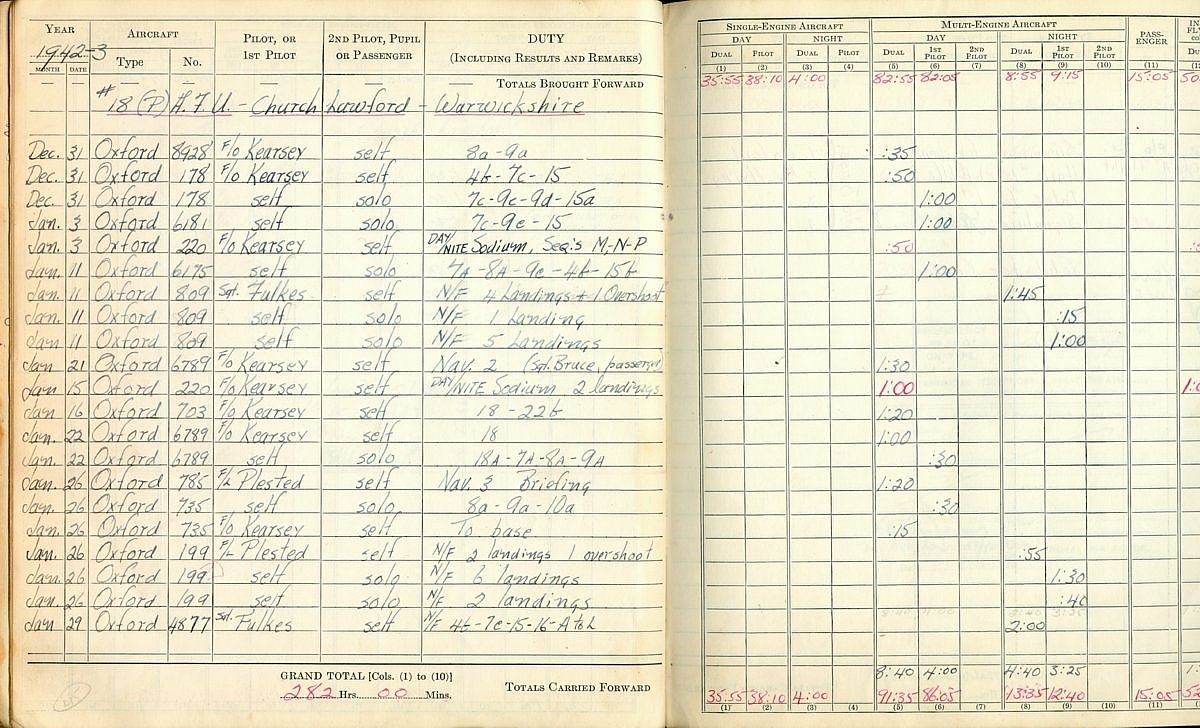 YEAR 1942-3 AIRCRAFT PILOT, OR 1ST PILOT 2ND PILOT, PUPIL OR PASSENGER DUTY (INCLUDING RESULTS AND REMARKS) SINGLE-ENGINE AIRCRAFT MULTI-ENGINE AIRCRAFT PASS-ENGER
DAY NIGHT DAY NIGHT
MONTH DATE Type No. DUAL PILOT DUAL PILOT DUAL 1ST PILOT 2ND PILOT DUAL 1ST PILOT 2ND PILOT
(1) (2) (3) (4) (5) (6) (7) (8) (9) (10) (11)
— — — — — — TOTALS BROUGHT FORWARD 35:55 38:10 4:00 82:55 82:05 8:55 9:15 15:05
#18 (P) A.F.U. - Church Lawford - Warwickshire
Dec. 31 Oxford 8928 F/O Kearsey self 8a-9a :35
Dec. 31 Oxford 178 F/O Kearsey self 4b-7c-15 :50
Dec. 31 Oxford 178 self solo 7c-9c-9d-15a 1:00
Jan. 3 Oxford 6181 self solo 7c-9e-15 1:00
Jan. 3 Oxford 220 F/O Kearsey self DAY/NITE Sodium, Seq:s M-N-P :50
Jan. 11 Oxford 6175 self solo 7A-8A-9e-4b-15b 1:00
Jan. 11 Oxford 809 Sgt. Fulkes self N/F 4 Landings + 1 Overshoot 1:45
Jan. 11 Oxford 809 self solo N/F 1 Landing :15
Jan 11 Oxford 809 self solo N/F 5 Landings 1:00
Jan 21 Oxford 6789 F/O Kearsey self Nav. 2 (Sgt. Bruce, passenger) 1:30
Jan 15 Oxford 220 F/O Kearsey self DAY/NITE Sodium 2 landings 1:00
Jan 16 Oxford 703 F/O Kearsey self 18-22b 1:20
Jan. 22 Oxford 6789 F/O Kearsey self 18 1:00
Jan. 22 Oxford 6789 self solo 18A-7A-8A-9A :30
Jan. 26 Oxford 785 F/L Plested self Nav. 3 Briefing 1:20
Jan. 26 Oxford 735 self solo 8a-9a-10a :30
Jan. 26 Oxford 735 F/O Kearsey self To base :15
Jan. 26 Oxford 199 F/L Plested self N/F 2 landings 1 overshoot :55
Jan. 26 Oxford 199 self solo N/F 6 landings 1:30
Jan. 26 Oxford 199 self solo N/F 2 landings :40
Jan 29 Oxford 4877 Sgt. Fulkes self N/F 4b-7e-15-16-A to L 2:00
8:40 4:00 4:40 3:25
GRAND TOTAL [Cols. (1) to (10)]
282 Hrs. 00 Mins. TOTALS CARRIED FORWARD 35:55 38:10 4:00 91:35 86:05 13:35 12:40 15:05
(1) (2) (3) (4) (5) (6) (7) (8) (9) (10) (11)